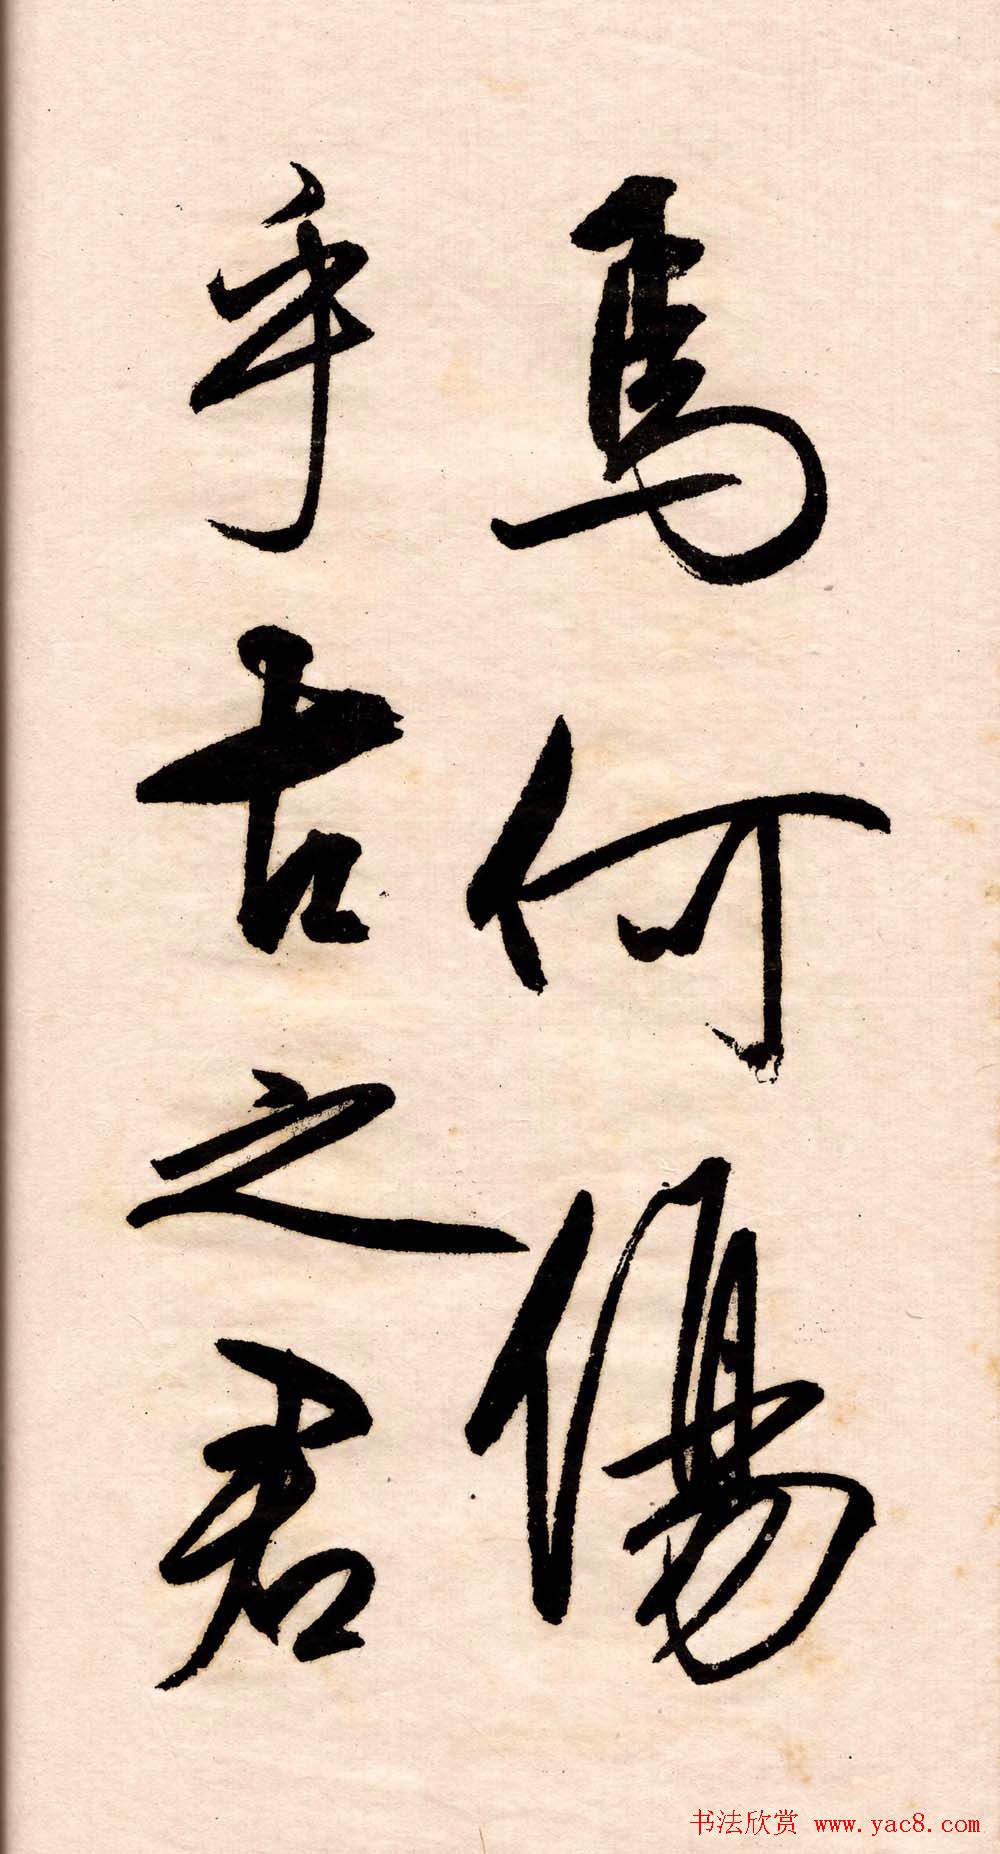 焉何傷
乎古之君
书法欣赏 www.yac8.com